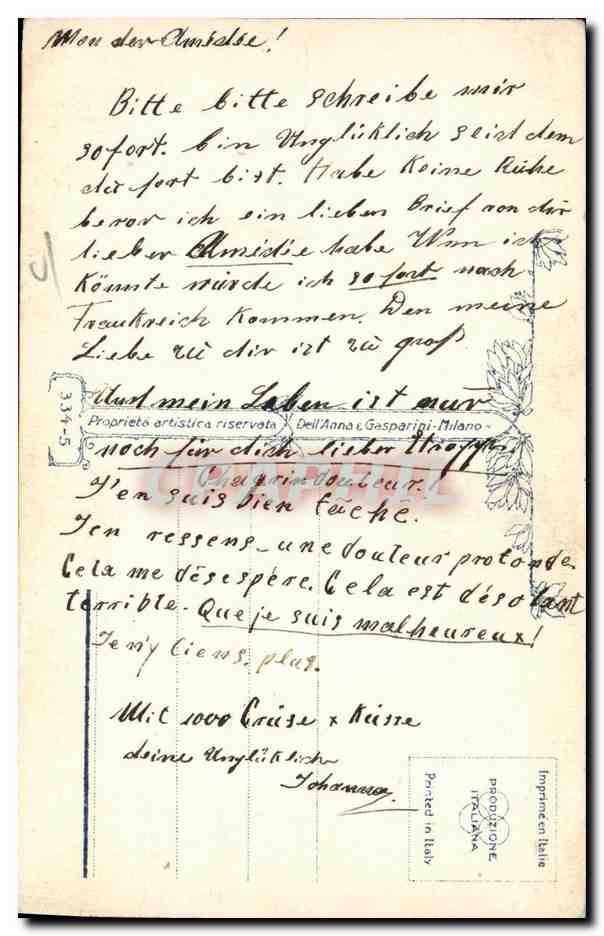 Mon der Amédée!
Bitte bitte schreibe mir
sofort. bin Unglüklich seist dem
du fort bist. Habe Keine Rühe
bevor ich ein lieben Brief von dir
lieber Amédée habe Wnn ich
Könnte würde ich sofort nach
Frankreich Kommen. Den meine
Liebe zu dir ist zu groß
Und mein Leben ist nur
334-5
Proprietà artistica riservata Dell'Anna & Gasparini-Milano
noch für dich lieber
Chagrin douleur!
J'en suis bien fâché.
J'en ressens une douleur profonde.
Cela me désespère. Cela est désolant
terrible. Que je suis malheureux!
Jen'y tiens plus.
Mit 1000 Grüse x Küsse
deine Unglüklich
Johanna
Imprimé en Italie
PRODUZIONE
ITALIANA
Printed in Italy